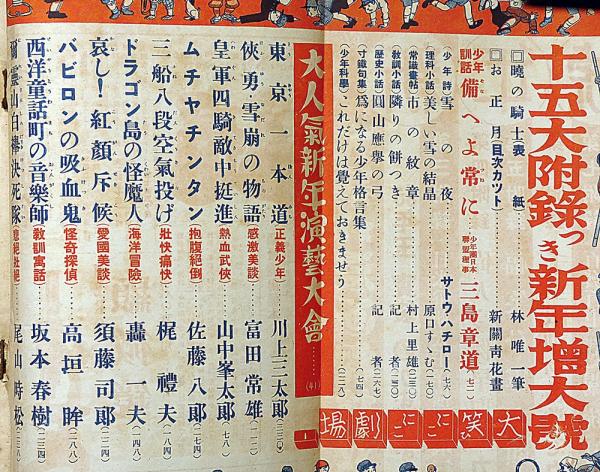 十五大附錄つき新年増大號
□曉の騎士(表紙) 林唯一筆
□お正月(目次カット) 新關青花畫
少年訓話 備へよ常に 少年團日本聯盟理事 三島章道(七二)
少年詩 雪の夜 サトウハチロー(七六)
(理科小話)美しい雪の結晶 原口すゝむ(一七〇)
(常識畫帖)市の紋章 村上里雄(二四〇)
(教訓小話)隣りの併つき 記者(二三〇)
(歴史小話)圓山應擧の弓 記者(二六七)
(寸鐵句集)爲になる少年格言集(七四)
(少年科學)これだけは覺えておきませう(二二八)
大笑にこにこ劇場
大人氣新年演藝大會(41)
東京一本道 正義少年 川上三太郎(三三〇)
俠勇・雪崩の物語 感激美談 富田常雄(二一二)
皇軍四騎敵中挺進 熱血武俠 山中峯太郎(七八)
ムチャチンタン 抱腹絕倒 佐藤八郎(一七四)
三船八段空氣投げ 壯快痛快 梶禮夫(一八四)
ドラゴン島の怪魔人 海洋冒險 轟一夫(一四八)
哀し!紅顏斥候 愛國美談 須藤司郎(二四二)
バビロンの吸血鬼 怪奇探偵 高垣眸(二八八)
西洋童話町の音樂師 教訓寓話 坂本春樹(二三四)
山白襷決死隊 尾山時松